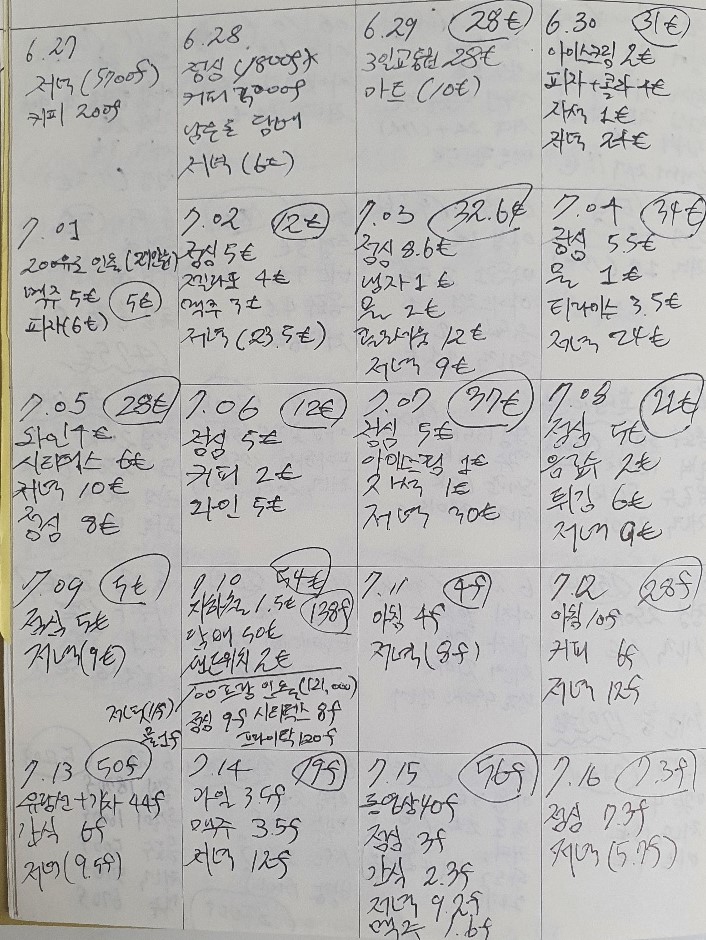 6.27
저녁 (5700f)
커피 200f
6.28
점심 (1800f)
커피
남은돈 담배
저녁 (6€)
6.29 28€
3일교통권 28€
마트 (10€)
6.30 31€
아이스크림 2€
피자+콜라 4€
자석 1€
저녁 24€
7.01
200유로 인출
맥주 5€ 5€
피자(6€)
7.02 12€
점심 5€
4€
맥주 3€
저녁 (23.5€)
7.03 32.6€
점심 8.6€
1€
물 2€
12€
저녁 9€
7.04 34€
점심 5.5€
물 1€
티라미수 3.5€
저녁 24€
7.05 28€
와인 4€
시티텍스 6€
저녁 10€
점심 8€
7.06 12€
점심 5€
커피 2€
와인 5€
7.07 37€
점심 5€
아이스크림 1€
자석 1€
저녁 30€
7.08 22€
점심 5€
음료수 2€
튀김 6€
저녁 9€
7.09 5€
점심 5€
저녁(9€)
7.10 54€
지하철 1.5€ 138f
담배 50€
샌드위치 2€
100프랑 인출(121,000)
점심 9f 시티텍스 8f
프라이탁 120f
저녁(1f)
물
7.11 4f
아침 4f
저녁(8f)
7.12 28f
아침 10f
커피 6f
저녁 12f
7.13 50f
유람선+기차 44f
간식 6f
저녁(9.5f)
7.14 19f
과일 3.5f
맥주 3.5f
저녁 12f
7.15 56f
동영상 40f
점심 3f
간식 2.3f
저녁 9.2f
맥주 1.6f
7.16 7.3f
점심 7.3f
저녁(5.7f)